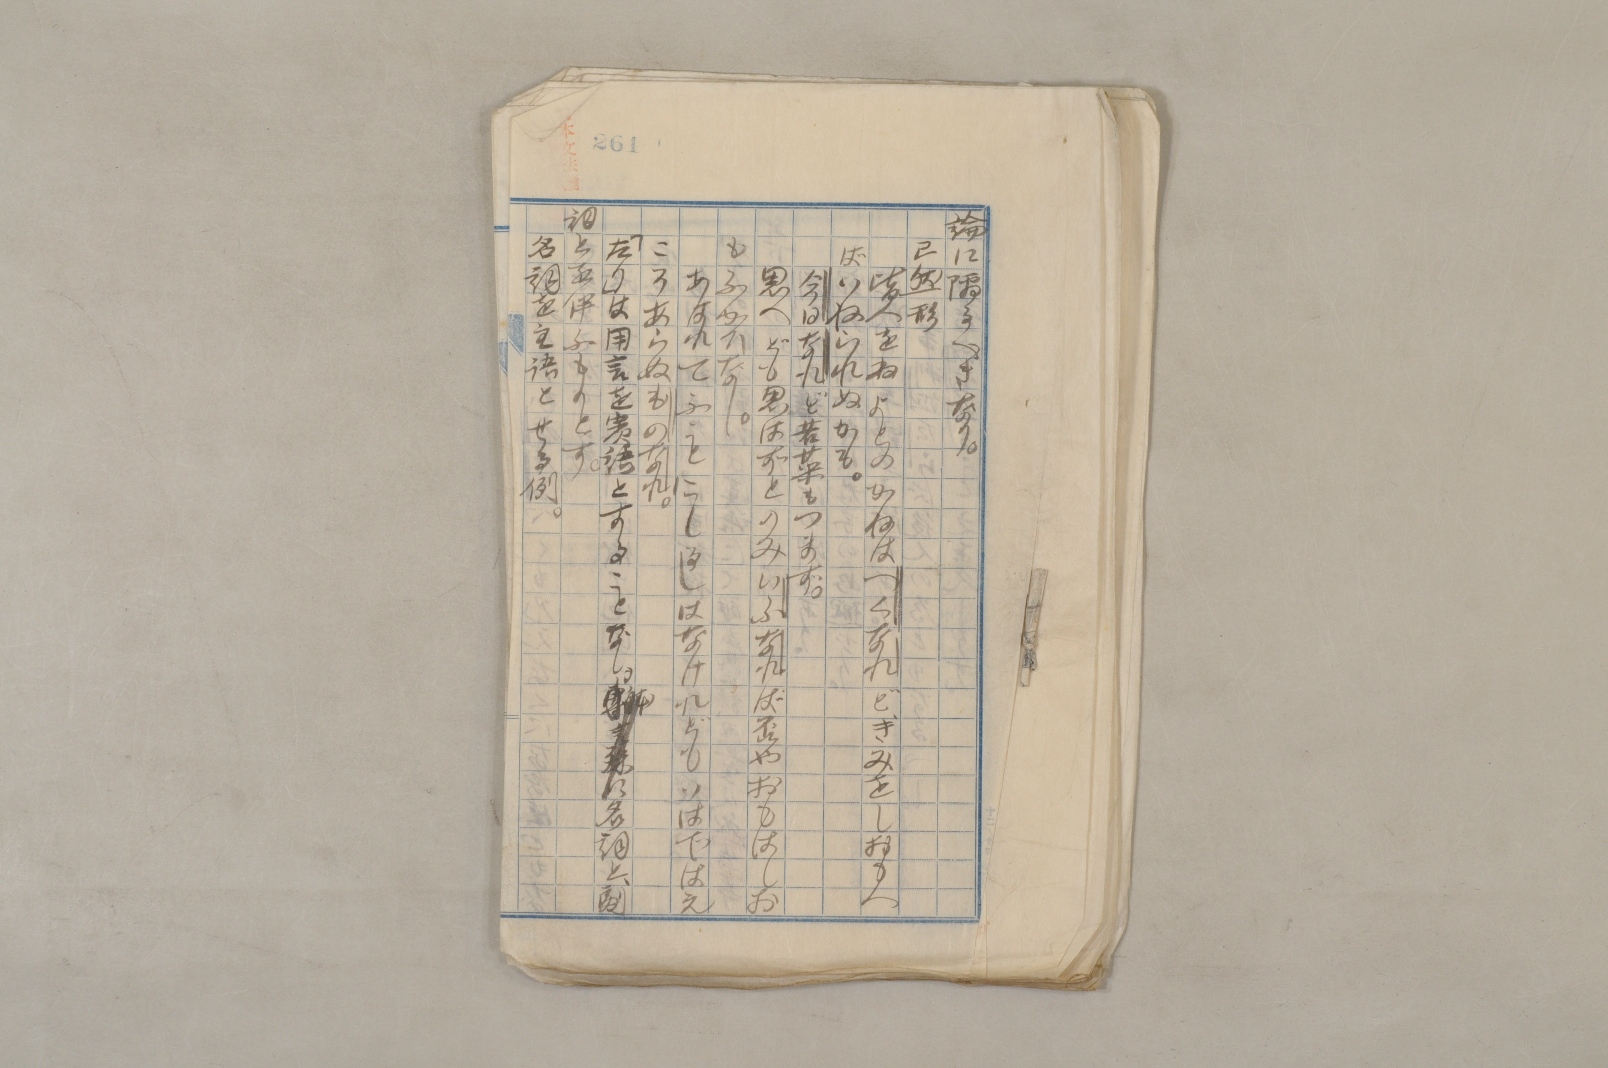 論に隔るべきなり。
已然形
皆人をねよとのかねはつくなれどきみをしおもへ
ばいねられぬかも。
今日なれど若菜もつまず。
思へども思はずとのみいふなれば否やおもはじお
もふかひなし。
あはれてふことにしるしはなけれどもいはではえ
こそあらぬものなれ。
「たり」は用言を賓語とすることなし。に名詞と副
詞とを伴ふものとす。
名詞を主語とせる例。
261